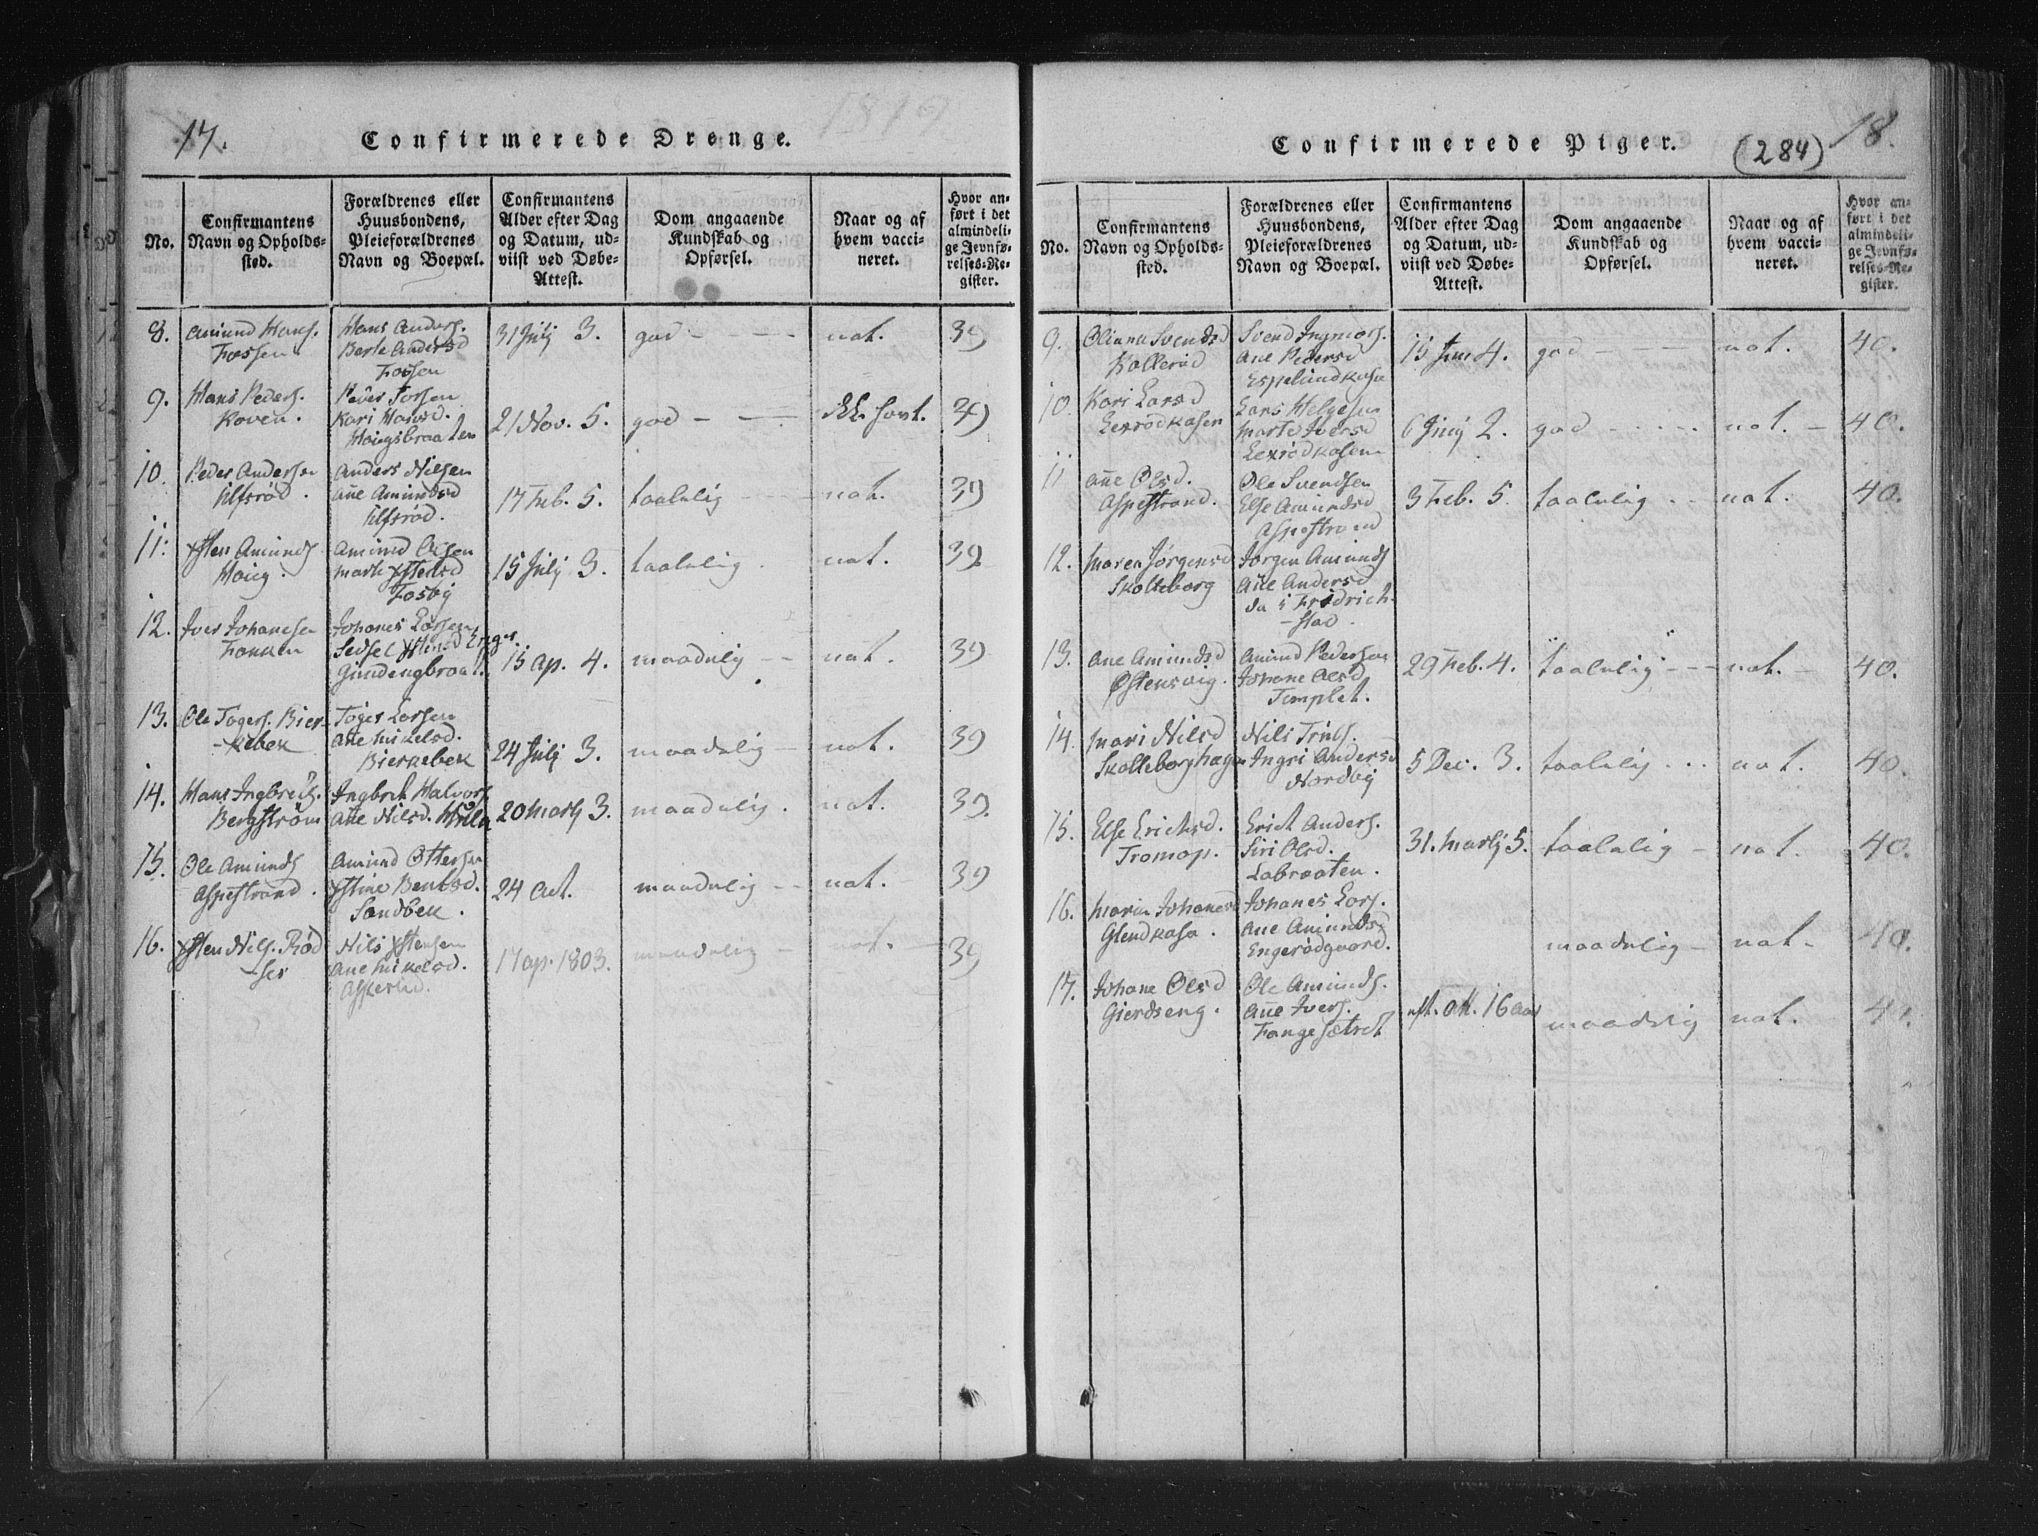 17.
Confirmerede Drenge.
No.
Confirmantens Navn og Opholdssted.
Forældrenes eller Huusbondens, Pleieforældrenes Navn og Boepæl.
Confirmantens Alder efter Dag og Datum, udviist ved Døbe-Attest.
Dom angaaende Kundskab og Opførsel.
Naar og af hvem vaccineret.
Hvor anført i det almindelige Jevnførelses-Register.
8. Amund Hans. Hans Anders. 31 Julj 3. god - - - nat. 39
Fossen Berte Andersd
Fossen
9. Hans Peders. Peder Torsen 21 Nov. 5. god - - 39
Koven. Kari Hansd.
Haugsbraaten
10. Peder Andersen Anders Nilsen 17 Feb. 5. taalelig - - nat. 39
Ulfsrød. Ane Amundsd
Ulfsrød.
11. Xsten Amunds Amund Olsen 15 Julj 3. taalelig. nat. 39
Houg. Marte Xstensd
Fosby
12. Iver Johanesen Johanes Larsen 15 ap. 4. maadelig - - nat. 39
Sedsel Xstensd
13. Ole Togers. Bier- Toger Larsen 24 Julj 3. maadelig - nat. 39
-kebek Ane Mikelsd.
Bierkebek
14. Hans Ingbreths. Ingbret Halvors 20 Martj 3. maadelig. nat. 39.
Bergstrøm Ane Nilsd.
15. Ole Amunds Amund Ottersen 24 Oct. maadelig - - nat. 39
Aspestrand. Xstine Bentsd.
Sandbek.
16. Xsten Nils. Rød Nils Xstensen 17 ap. 1803. maadelig - nat. 39
-ser Ane Mikelsd.
18.
(284)
Confirmerede Piger.
No.
Confirmantens Navn og Opholdssted.
Forældrenes eller Huusbondens, Pleieforældrenes Navn og Boepæl.
Confirmantens Alder efter Dag og Datum, udviist ved Døbe-Attest.
Dom angaaende Kundskab og Opførsel.
Naar og af hvem vaccineret.
Hvor anført i det almindelige Jevnførelses-Register.
9. Oliana Svendsd Svend Ingmars. 15 Jun 4. god - - nat. 40.
Kollerød Ane Pedersd
Espelundkasa
10. Kari Larsd Lars Helgesen 6 Junj 2. god - - - - - nat. - 40.
Lexrødkasen Marte Iversd
Lexrødkasen
11 Ane Olsd. Ole Svendsen 3 Feb. 5. taalelig - - nat. 40.
Aspestrand. Else Amundsd
Aspestrand
12. Maren Jørgensd Jørgen Amunds
Skolleborg Ane Andersd
da i Fridrich-
-stad.
13. Ane Amundsd Amund Pedersen 29 Feb. 4. taalelig - - - nat. - 40.
Østensvig. Johane Olsd
Templet.
14. Mari Nilsd Nils Truls. 5 Dec. 3. taalelig - - - nat. 40.
Skolleborghagen Ingri Andersd
Nordby
15. Else Erichsd. Erich Anders. 31. Martj 5. taalelig - nat. 40.
Tromop. Siri Olsd.
Labraaten.
16. Maria Johanesd Johanes Lars. maadelig - nat - 40.
Glendkasa. Ane Amundsd
Engerødgaard.
17. Johane Olsd Ole Amunds. eft. att. 16 aar maadelig nat. 40.
Gierdseng. Ane Ivers.